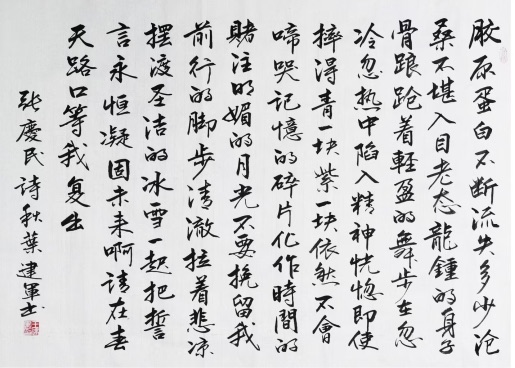 胶原蛋白不断流失多少沧
桑不堪入目老态龍鍾的身子
骨踉跄着輕盈的舞步在忽
冷忽热中陷入精神恍惚即使
摔得青一块紫一块依然不會
啼哭记憶的碎片化作時間的
赌注明媚的月光不要挽留我
前行的脚步清澈拉着悲凉
摆渡圣洁的冰雪一起把誓
言永恒凝固未来啊请在春
天路口等我复出
张慶民詩秋葉建軍书